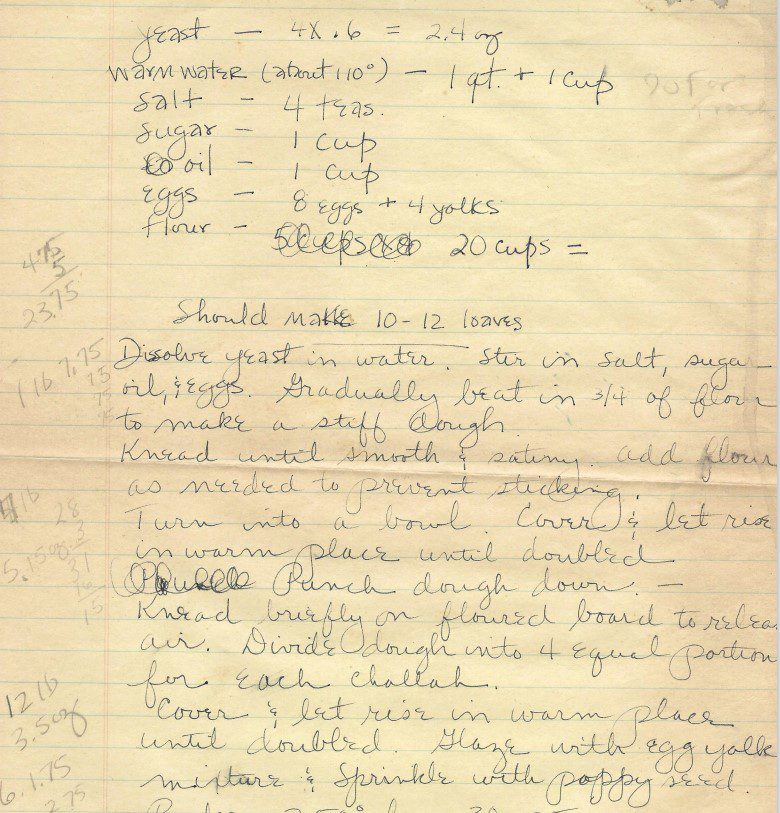 yeast — 4X.6 = 2.4 oz
Warm water (about 110°) — 1 qt. + 1 cup
Salt — 4 teas.
Sugar — 1 cup
oil — 1 cup
eggs — 8 eggs + 4 yolks
flour — 20 cups =
475
5
23.75
Should make 10-12 loaves
Disolve yeast in water. Stir in salt, sugar
oil, & eggs. Gradually beat in 3/4 of flour
to make a stiff dough
Knead until smooth & satiny. add flour
as needed to prevent sticking.
Turn into a bowl. Cover & let rise
in warm place until doubled
Punch dough down. —
Knead briefly on floured board to relea
air. Divide dough into 4 equal portion
for each challah.
Cover & let rise in warm place
until doubled. Glaze with egg yolk
mixture & Sprinkle with poppy seed.
1 lb 7.75
28
15
12 lb
3.5 oz
6.1.75
275